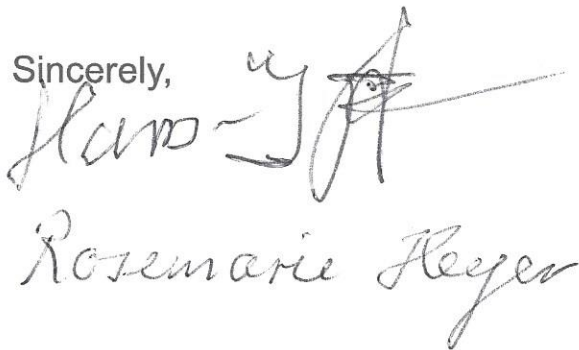 Sincerely,
Hans-J
Rosemarie Heyer